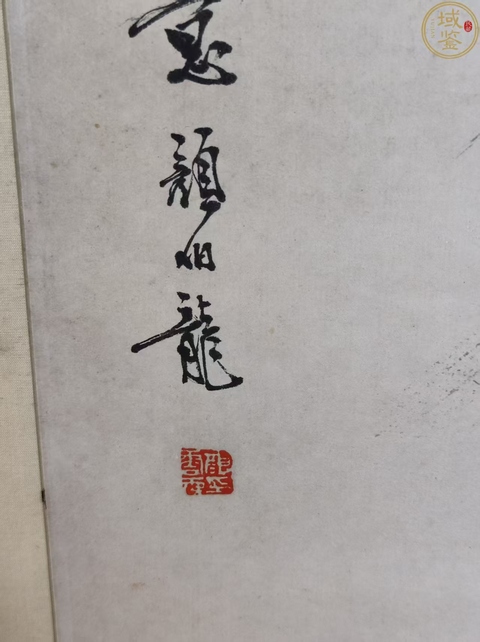 意
顏伯龍
域鉴